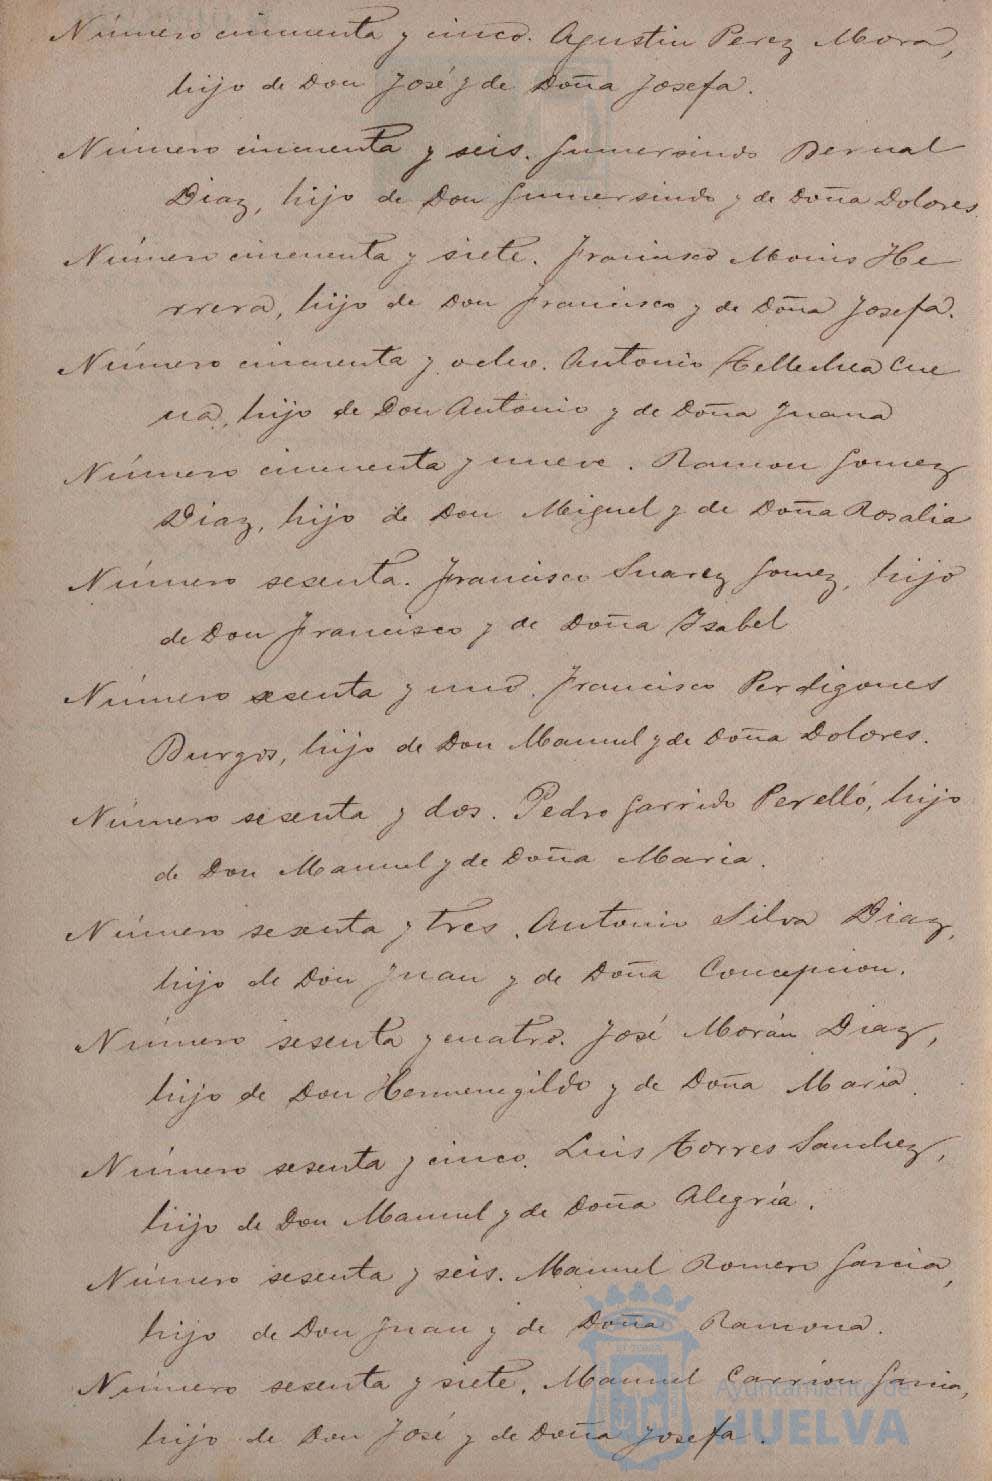 Número cincuenta y cinco. Agustin Perez Mora,
hijo de Don José y de Doña Josefa.
Número cincuenta y seis. Gumersindo Bernal
Diaz, hijo de Don Gumersindo y de Doña Dolores
Número cincuenta y siete. Francisco Moins He-
rrera, hijo de Don Francisco y de Doña Josefa.
Número cincuenta y ocho. Antonio Tellechea Cue
va, hijo de Don Antonio y de Doña Juana
Número cincuenta y nueve. Ramon Gomez
Diaz, hijo de Don Miguel y de Doña Rosalia
Número sesenta. Francisco Suarez Gomez, hijo
de Don Francisco y de Doña Isabel
Número sesenta y uno. Francisco Perdigones
Burgos, hijo de Don Manuel y de Doña Dolores.
Número sesenta y dos. Pedro Garrido Perelló, hijo
de Don Manuel y de Doña Maria.
Número sesenta y tres. Antonio Silva Diaz,
hijo de Don Juan y de Doña Concepcion.
Número sesenta y cuatro. José Morán Diaz,
hijo de Don Hermenegildo y de Doña Maria
Número sesenta y cinco. Luis Torres Sanchez,
hijo de Don Manuel y de Doña Alegría.
Número sesenta y seis. Manuel Romero Garcia,
hijo de Don Juan y de Doña Ramona.
Número sesenta y siete. Manuel Carrión Garcia,
hijo de Don José y de Doña Josefa.
Ayuntamiento de
HUELVA